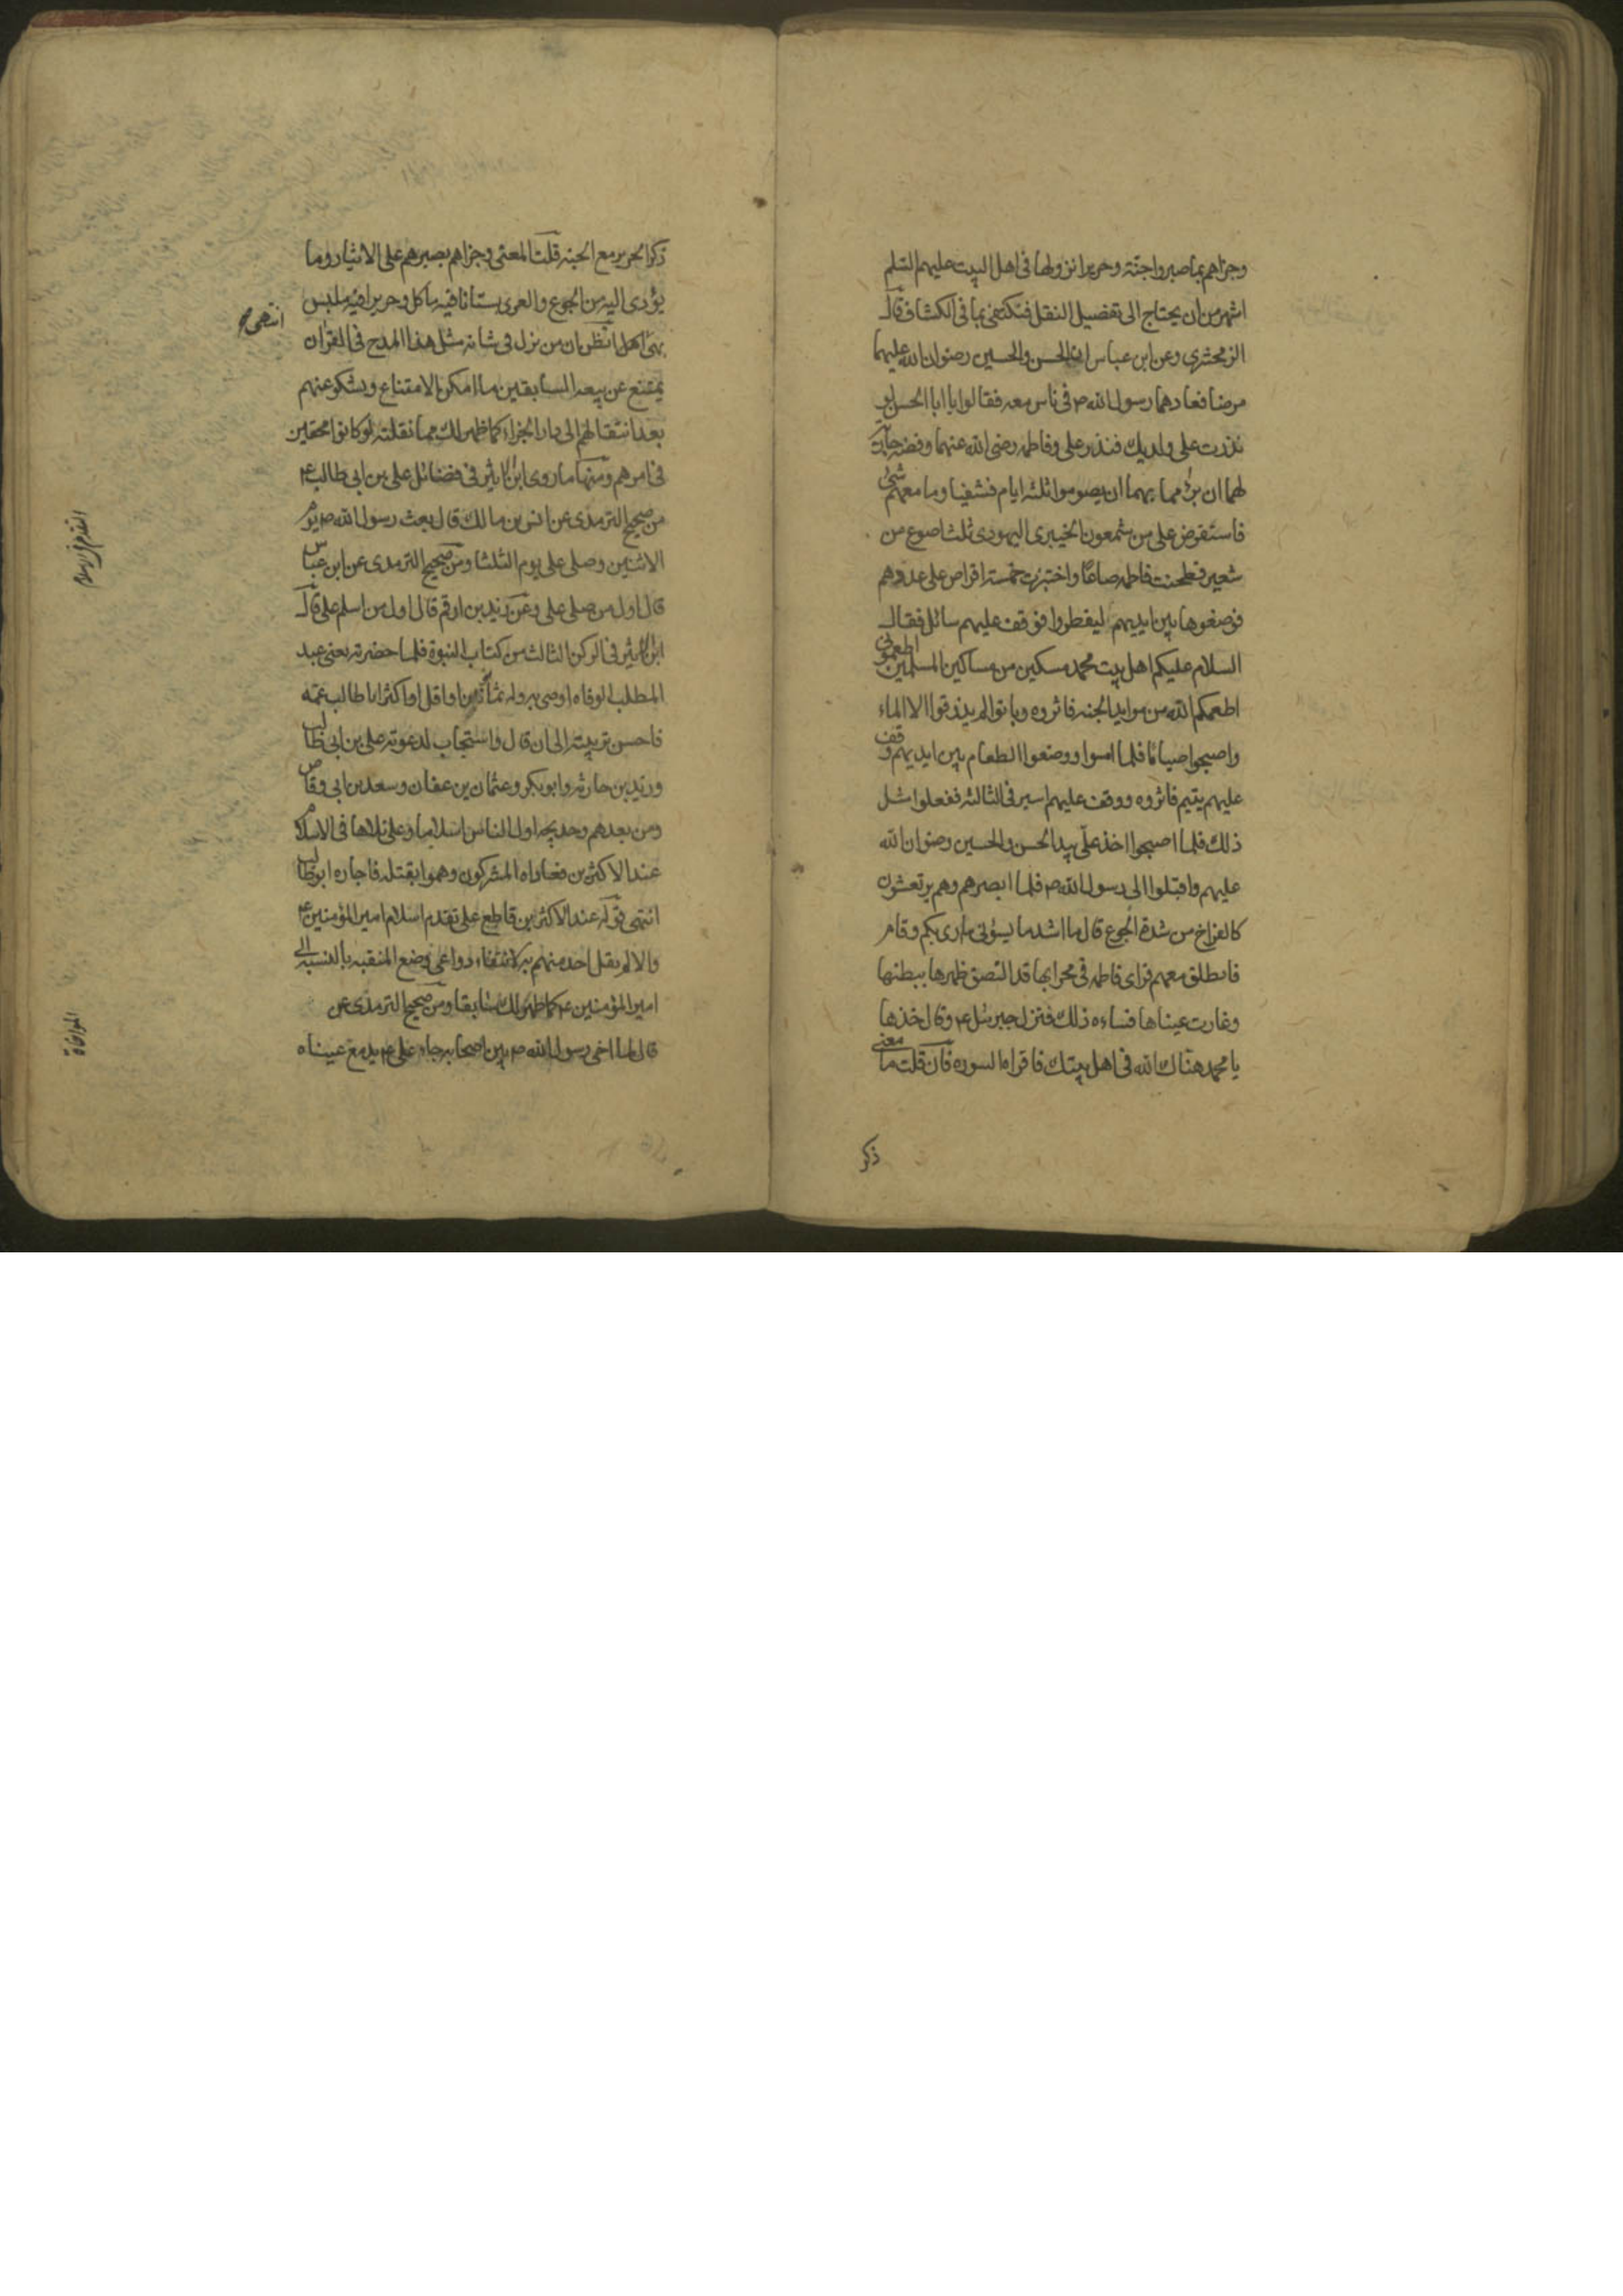 وجزاهم بما صبروا جنة وحريرا نزولها فى اهل البيت عليهم السلم
اشهر من ان يحتاج الى تفضيل النقل فنكتفى بما فى الكشاف قال
الزمخشرى وعن ابن عباس ان الحسن والحسين رضوان الله عليهما
مرضا فعادهما رسول الله ص فى ناس معه فقالوا يا ابا الحسن لو
نذرت على ولديك فنذر على وفاطمه رضى الله عنهما وفضه جارية
لهما ان برئ مما بهما ان يصوموا ثلثه ايام فشفيا وما معهم شئ
فاستقرض على من شمعون الخيبرى اليهودى ثلث اصوع من
شعير فطحنت فاطمه صاعا واختبزت خمسة اقراص على عددهم
فوضعوها بين ايديهم ليفطروا فوقف عليهم سائل فقال
السلام عليكم اهل بيت محمد مسكين من مساكين المسلمين اطعمونى
اطعمكم الله من موايد الجنه فاثروه وباتوا لم يذقوا الا الماء
واصبحوا صياما فلما امسوا ووضعوا الطعام بين ايديهم وقف
عليهم يتيم فاثروه ووقف عليهم اسير فى الثالثه ففعلوا مثل
ذلك فلما اصبحوا اخذ على بيد الحسن والحسين رضوان الله
عليهم واقبلوا الى رسول الله ص فلما ابصرهم وهم يرتعشون
كالفراخ من شدة الجوع قال ما اشد ما يسؤنى ما ارى بكم وقام
فانطلق معهم فراى فاطمه فى محرابها قد التصق ظهرها ببطنها
وغارت عيناها فساءه ذلك فنزل جبرئيل ع وقال خذها
يا محمد هناك الله فى اهل بيتك فاقراه السوره فان قلت ما معنى
ذكر
ذكر الحرير مع الجنه قلت المعنى وجزاهم بصبرهم على الايثار وما
يؤدى اليه من الجوع والعرى بستانا فيه ماكل وحريرا فيه ملبس
انتهى
بهى اهل اتظن ان من نزل فى شانه مثل هذا المدح فى القران
يمتنع عن بيعه السابقين ما امكن الامتناع ويشكو عنهم
بعد انتقالهم الى دار الجزاء كما ظهر لك مما نقلته لو كانوا محقين
فى امرهم ومنها ما روى ابن الاثير فى فضائل على بن ابى طالب ع
من صحيح الترمذى عن انس بن مالك قال بعث رسول الله ص يوم
الاثنين وصلى على يوم الثلثا ومن صحيح الترمذى عن ابن عباس
قال اول من صلى على وعن زيد بن ارقم قال اول من اسلم على قال
ابن الاثير فى الركن الثالث من كتاب النبوة فلما حضرته يعنى عبد
المطلب الوفاه اوصى به وله ثمان سنين او اقل او اكثر ابا طالب عمه
فاحسن تربيته الى ان قال واستجاب لدعوته على بن ابى طالب
وزيد بن حارثه وابو بكر وعثمان بن عفان وسعد بن ابى وقاص
ومن بعدهم وخديجه اول الناس اسلاما وعلى تلاها فى الاسلام
عند الاكثرين فعاداه المشركون وهموا بقتله فاجاره ابو طالب
انتهى قوله عند الاكثرين قاطع على تقدم اسلام امير المؤمنين ع
والا لم يقل احد منهم به لانتفاء دواعى وضع المنقبه بالنسبه الى
امير المؤمنين ع كما ظهر لك سابقا ومن صحيح الترمذى عن
قال لما اخى رسول الله ص بين اصحابه جاء على ع يدمع عيناه
التقدم فى الاسلام
المواخاة